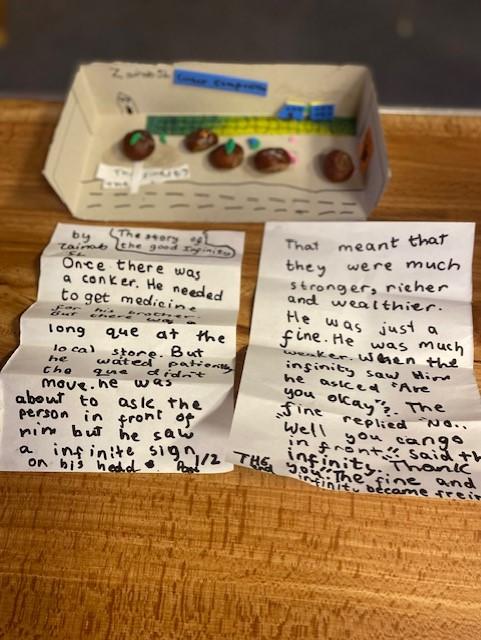 Zainab SL
by
Zainab
SL
The story of
the good Infinity
Once there was
a conker. He needed
to get medicine
for his brother.
But there was a
long que at the
local store. But
he wated patiently
the que didn't
move. he was
about to ask the
person in front of
him but he saw
a infinite sign
on his hedd. Part 1/2
That meant that
they were much
stronger, richer
and wealthier.
He was just a
fine. He was much
weaker. When the
infinity saw him
he asked "Are
you okay"? The
fine replied "No..
"Well you cango
in front" said th
infinity. "Thank
you". The fine and
infinity became
THE